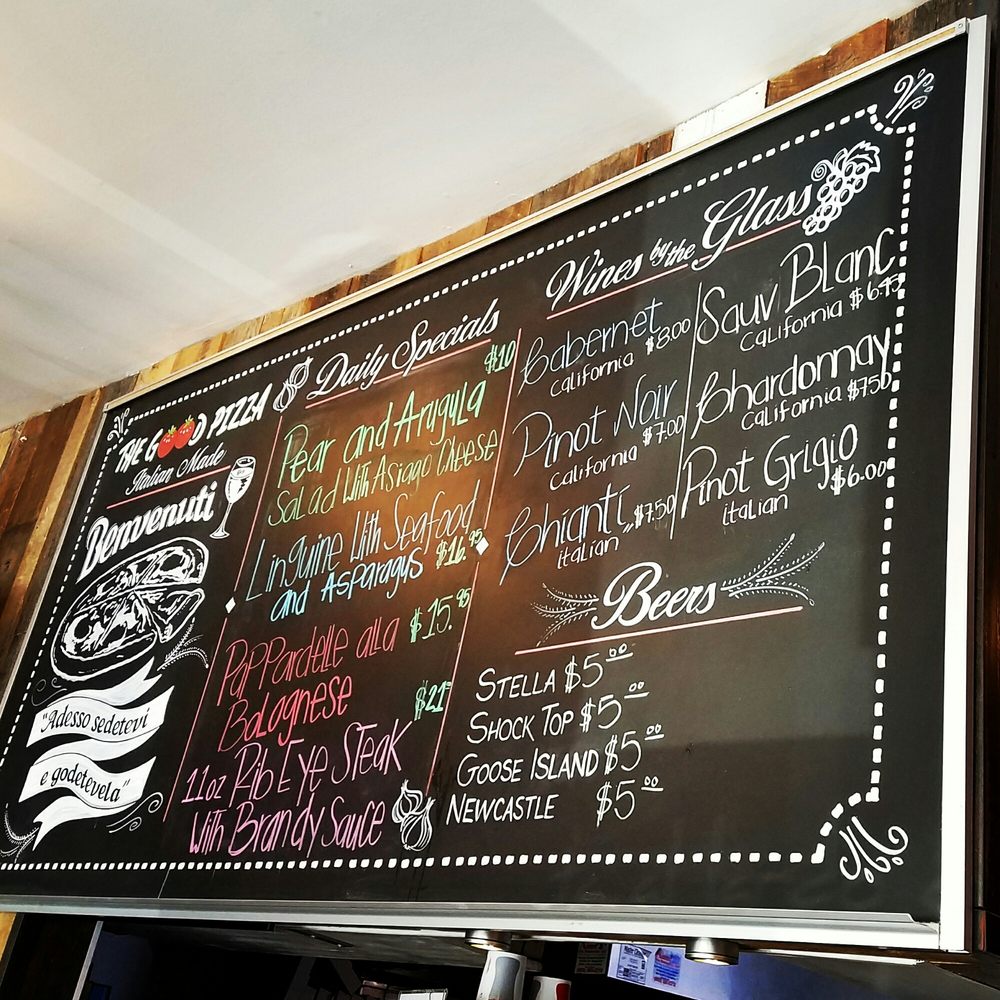 THE GOOD PIZZA
Italian Made
Benvenuti
"Adesso sedetevi
e godetevela"
Daily Specials
$10
Pear and Arugula
Salad With Asiago Cheese
Linguine With Seafood
and Asparagus $16.95
Pappardelle alla $15.95
Bolagnese
$21
11oz Rib Eye Steak
With Brandy Sauce
Wines by the Glass
Cabernet
California $8.00
Pinot Noir
California $7.00
Chianti
Italian $7.50
Sauv Blanc
California $6.45
Chardonnay
California $7.50
Pinot Grigio
Italian $6.00
Beers
STELLA $5.00
SHOCK TOP $5.00
GOOSE ISLAND $5.00
NEWCASTLE $5.00